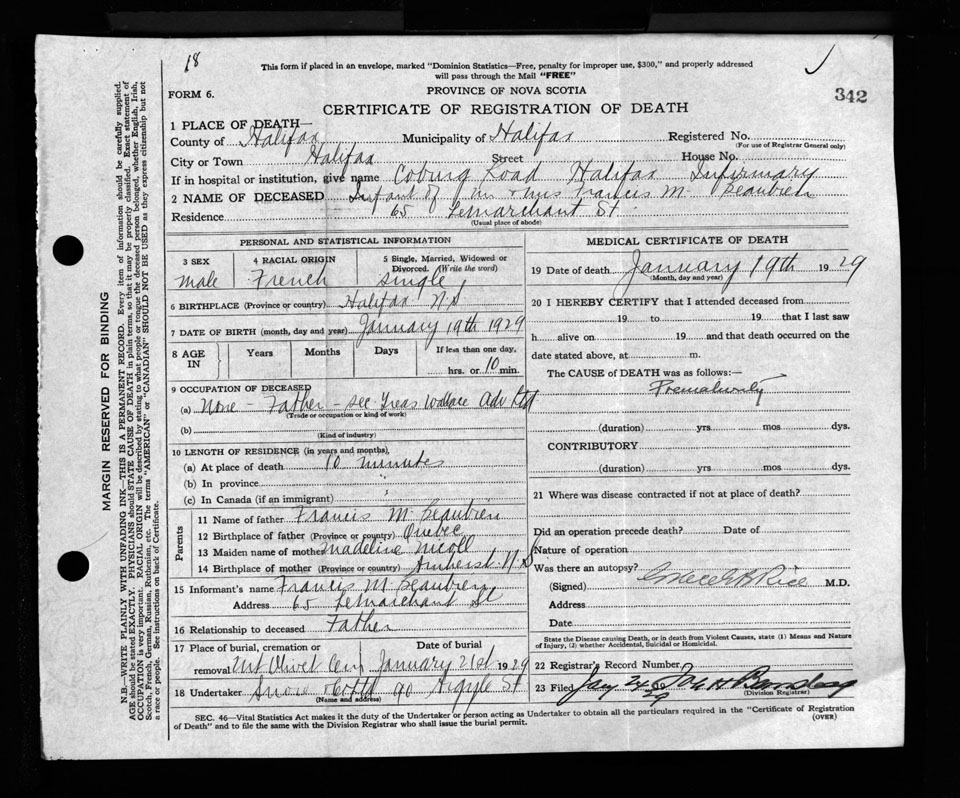 18
This form if placed in an envelope, marked "Dominion Statistics—Free, penalty for improper use, $300," and properly addressed
will pass through the Mail "FREE"
FORM 6.
PROVINCE OF NOVA SCOTIA
342
CERTIFICATE OF REGISTRATION OF DEATH
1 PLACE OF DEATH—
County of Halifax Municipality of Halifax Registered No.
(For use of Registrar General only)
City or Town Halifax Street House No.
If in hospital or institution, give name Coburg Road Halifax Infirmary
2 NAME OF DECEASED Infant of Mr & Mrs Francis M. Beaubien
Residence 65 LeMarchant St.
(Usual place of abode)
PERSONAL AND STATISTICAL INFORMATION
3 SEX 4 RACIAL ORIGIN 5 Single, Married, Widowed or
Divorced. (Write the word)
Male French Single
6 BIRTHPLACE (Province or country) Halifax N.S
7 DATE OF BIRTH (month, day and year) January 19th 1929
8 AGE IN Years Months Days If less than one day,
hrs. or 10 min.
9 OCCUPATION OF DECEASED
(a) None - Father - Sec Treas Wallace Adv Ltd
(Trade or occupation or kind of work)
(b)
(Kind of industry)
10 LENGTH OF RESIDENCE (in years and months)
(a) At place of death 10 minutes
(b) In province "
(c) In Canada (if an immigrant) "
Parents
11 Name of father Francis M. Beaubien
12 Birthplace of father (Province or country) Quebec
13 Maiden name of mother Madeline Nicoll
14 Birthplace of mother (Province or country) Amherst N.S
15 Informant's name Francis M. Beaubien
Address 65 LeMarchant St
16 Relationship to deceased Father
17 Place of burial, cremation or Date of burial
removal Mt Olivet Cem January 21st 1929
18 Undertaker Snow & Co Ltd 90 Argyle St
(Name and address)
MEDICAL CERTIFICATE OF DEATH
19 Date of death January 19th 1929
(Month, day and year)
20 I HEREBY CERTIFY that I attended deceased from
19 to 19 that I last saw
h alive on 19 and that death occurred on the
date stated above, at m.
The CAUSE of DEATH was as follows:—
Prematurity
(duration) yrs mos dys.
CONTRIBUTORY
(duration) yrs. mos. dys.
21 Where was disease contracted if not at place of death?
Did an operation precede death? Date of
Nature of operation
Was there an autopsy?
(Signed) Grace E B Rice M.D.
Address
Date
State the Disease causing Death, or in death from Violent Causes, state (1) Means and Nature
of Injury, (2) whether Accidental, Suicidal or Homicidal.
22 Registrar's Record Number
23 Filed Jan
(Division Registrar)
SEC. 46—Vital Statistics Act makes it the duty of the Undertaker or person acting as Undertaker to obtain all the particulars required in the "Certificate of Registration
of Death" and to file the same with the Division Registrar who shall issue the burial permit.
(OVER)
MARGIN RESERVED FOR BINDING
N.B.—WRITE PLAINLY WITH UNFADING INK—THIS IS A PERMANENT RECORD. Every item of information should be carefully supplied.
AGE should be stated EXACTLY. PHYSICIANS should STATE CAUSE OF DEATH in plain terms, so that it may be properly classified. Exact statement of
OCCUPATION is very important. RACIAL ORIGIN will be described by stating to what people or tongue the deceased person belonged, whether English, Irish,
Scotch, French, German, Russian, Ruthenian, etc. The terms "AMERICAN" or "CANADIAN" SHOULD NOT BE USED as they express citizenship but not
a race or people. See instructions on back of Certificate.